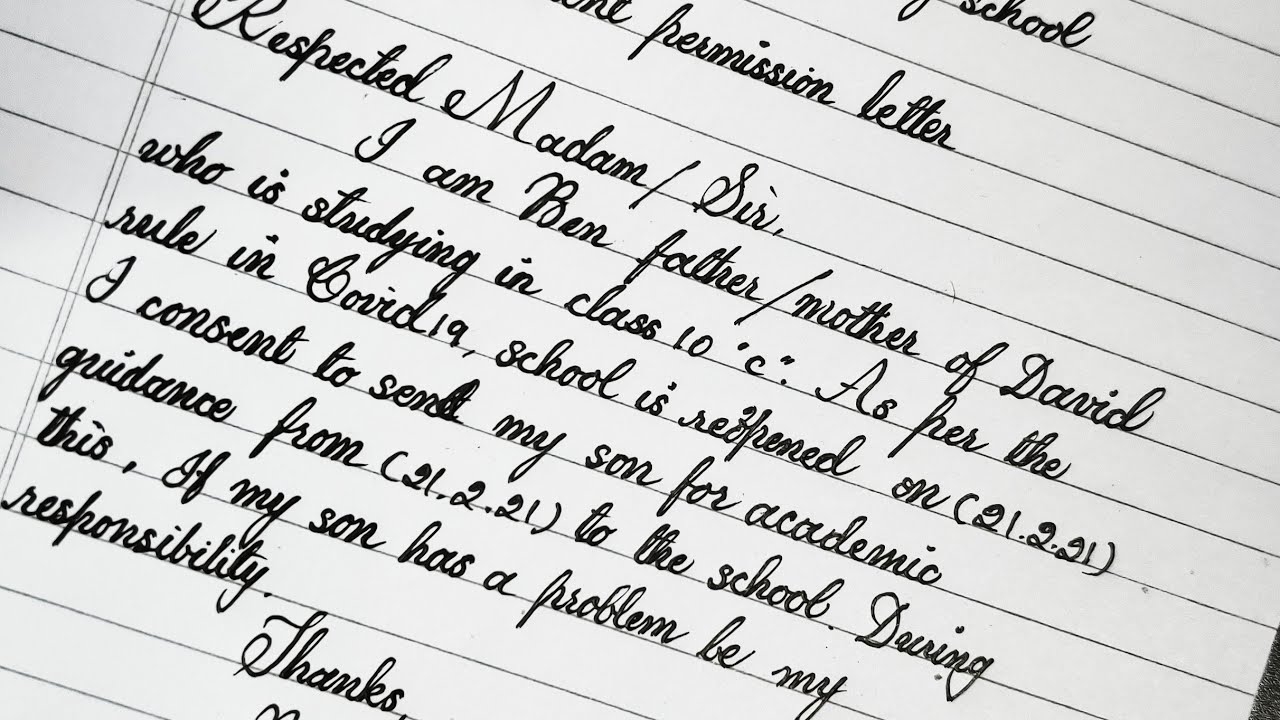 school
permission letter
Respected Madam/ Sir,
I am Ben father/mother of David
who is studying in class 10 "C". As per the
rule in Covid19, school is reopened on (21.2.21)
I consent to send my son for academic
guidance from (21.2.21) to the school. During
this, If my son has a problem be my
responsibility.
Thanks,